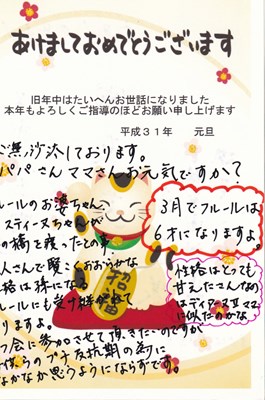 あけましておめでとうございます
旧年中はたいへんお世話になりました
本年もよろしくご指導のほどお願い申し上げます
平成31年 元旦
ご無沙汰しております。
パパさんママさんお元気ですか？
ルールのお婆ちゃん
スティーヌちゃんが
の橋を渡ったとの事
人さんで賢くおおらかな
性格は孫になる
ルールにも受け継がれて
りますよ。
会に参加させて頂きたいのですが
プチ反抗期の為に
なかなか思うようにならずです。
3月でフルールは
6才になりますよ。
性格はとっても
甘えたさんなの
はディアマミママ
に似たのかな
招福